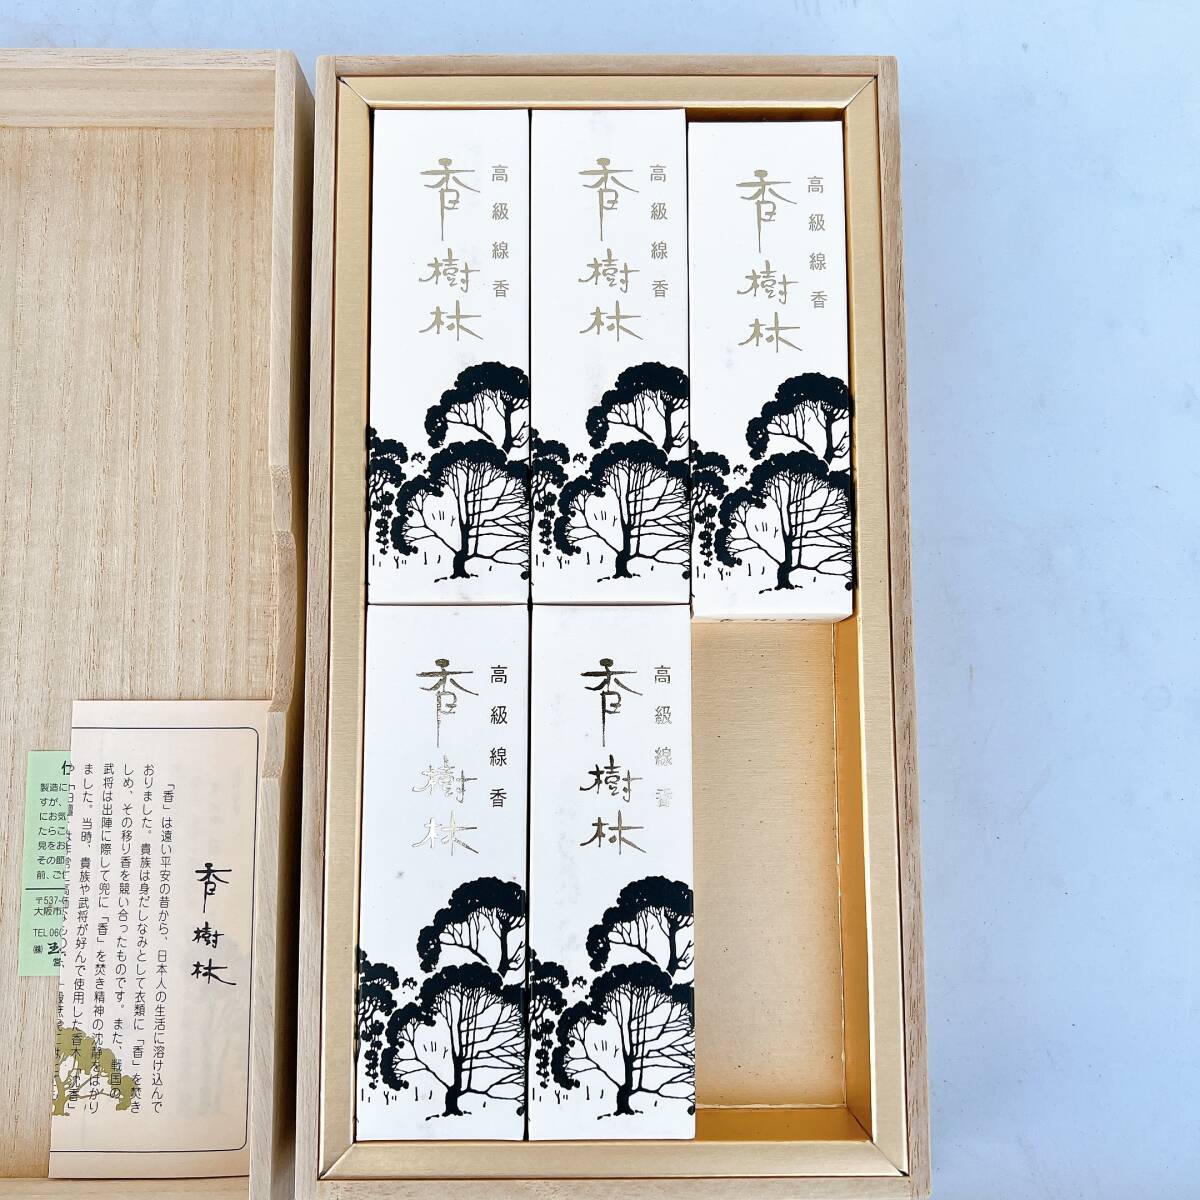 高級線香
香樹林
高級線香
香樹林
高級線香
香樹林
高級線香
香樹林
高級線香
香樹林
香樹林
「香」は遠い平安の昔から、日本人の生活に溶け込んで
おりました。貴族は身だしなみとして衣類に「香」を焚き
しめ、その移り香を競い合ったものです。また、戦国の
武将は出陣に際して兜に「香」を焚き精神の沈静をはかり
ました。当時、貴族や武将が好んで使用した香木「沈香」
製造に
すが、
にお気
たらこ
見をお
その節
前、ご
〒537-
大阪市
TEL 06
㈱ 玉
営